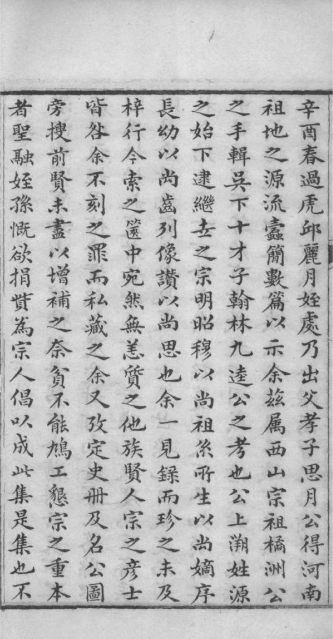 辛酉春過虎邱麗月姪處乃出父孝子思月公得河南
祖地之源流蠹簡數篇以示余玆属西山宗祖橘洲公
之手輯吳下十才子翰林九逵公之考也公上溯姓源
之始下逮繼去之宗明昭穆以尚祖系所生以尚嫡序
長幼以尚齒列像讚以尚思也余一見録而珍之未及
梓行今索之篋中宛然無恙質之他族賢人宗之彦士
皆咎余不刻之罪而私藏之余又攷定史册及名公圖
旁搜前賢未盡以增補之奈貧不能鳩工懇宗之重本
者聖融姪孫慨欲捐貲為宗人倡以成此集是集也不